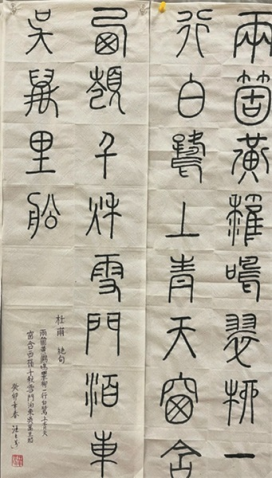 兩箇黃鸝鳴翠柳一
行白鷺上青天窗含
西嶺千秋雪門泊東
吳萬里船
杜甫 绝句
兩箇黃鸝鳴翠柳一行白鷺上青天
窗含西嶺千秋雪門泊東吳萬里船
癸卯年春